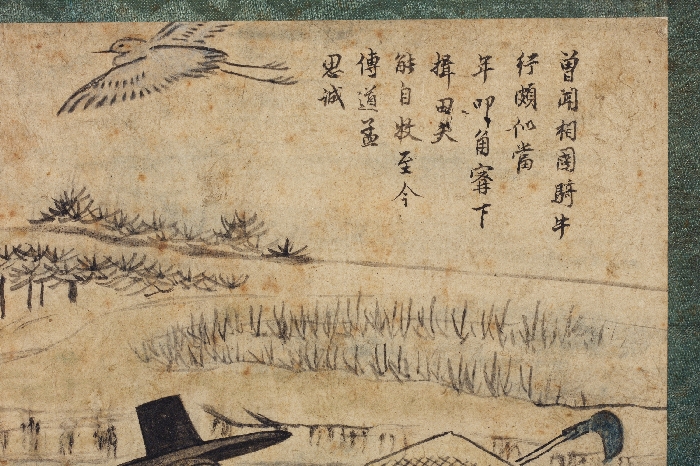 曽聞相國騎牛
行頗似當
年叩角寗下
揖田夫
能自牧至今
傳道孟
思誠